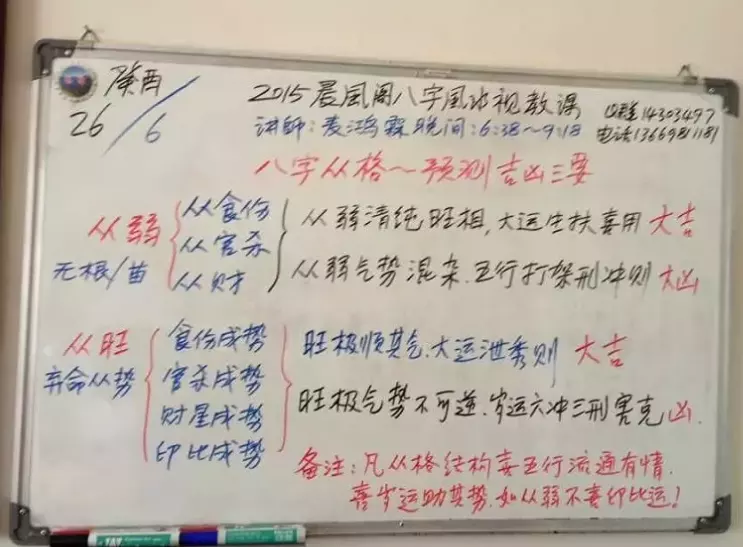 癸酉
26/6
2015晨風阁八字风水视教课
讲師:麦鴻霖 晚间:6:38~9:18
Q群14303497
电话13669811181
八字从格~预测吉凶三要
从弱
无根/苗
从食伤
从官杀
从财
从弱清纯旺相,大运生扶喜用 大吉
从弱气势混杂.五行打架刑冲则 大凶
从旺
弃命从势
食伤成势
官杀成势
财星成势
印比成势
旺极顺其气.大运泄秀则 大吉
旺极气势不可逆.岁运六冲三刑害克 凶.
备注:凡从格结构喜五行流通有情.
喜岁运助其势.如从弱不喜印比运!